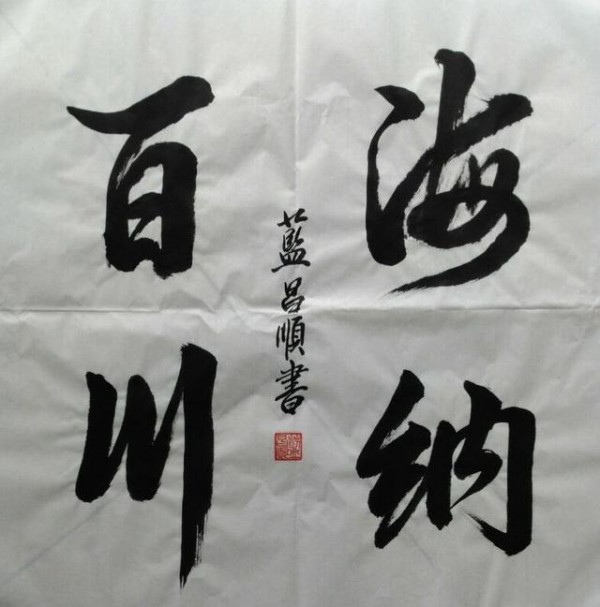 海納
百川
藍昌順書